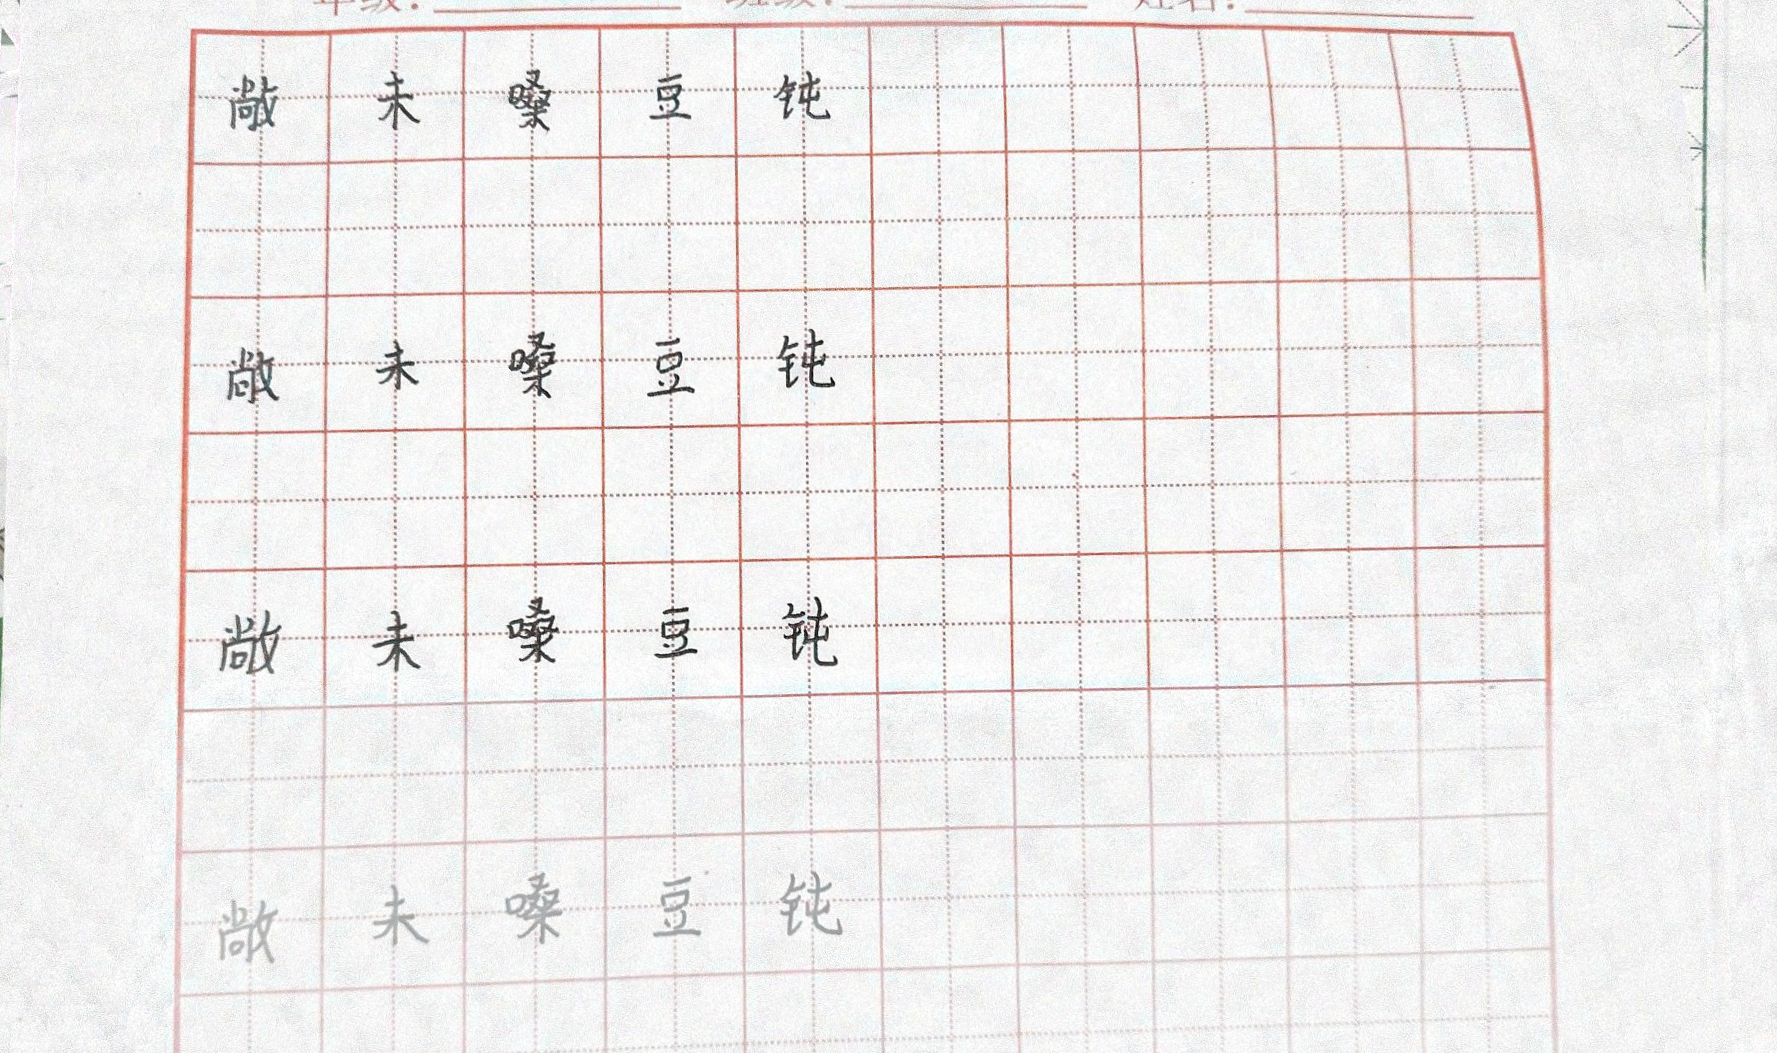 年级: 班级: 姓名:
敞 未 嗓 豆 钝
敞 未 嗓 豆 钝
敞 未 嗓 豆 钝
敞 未 嗓 豆 钝